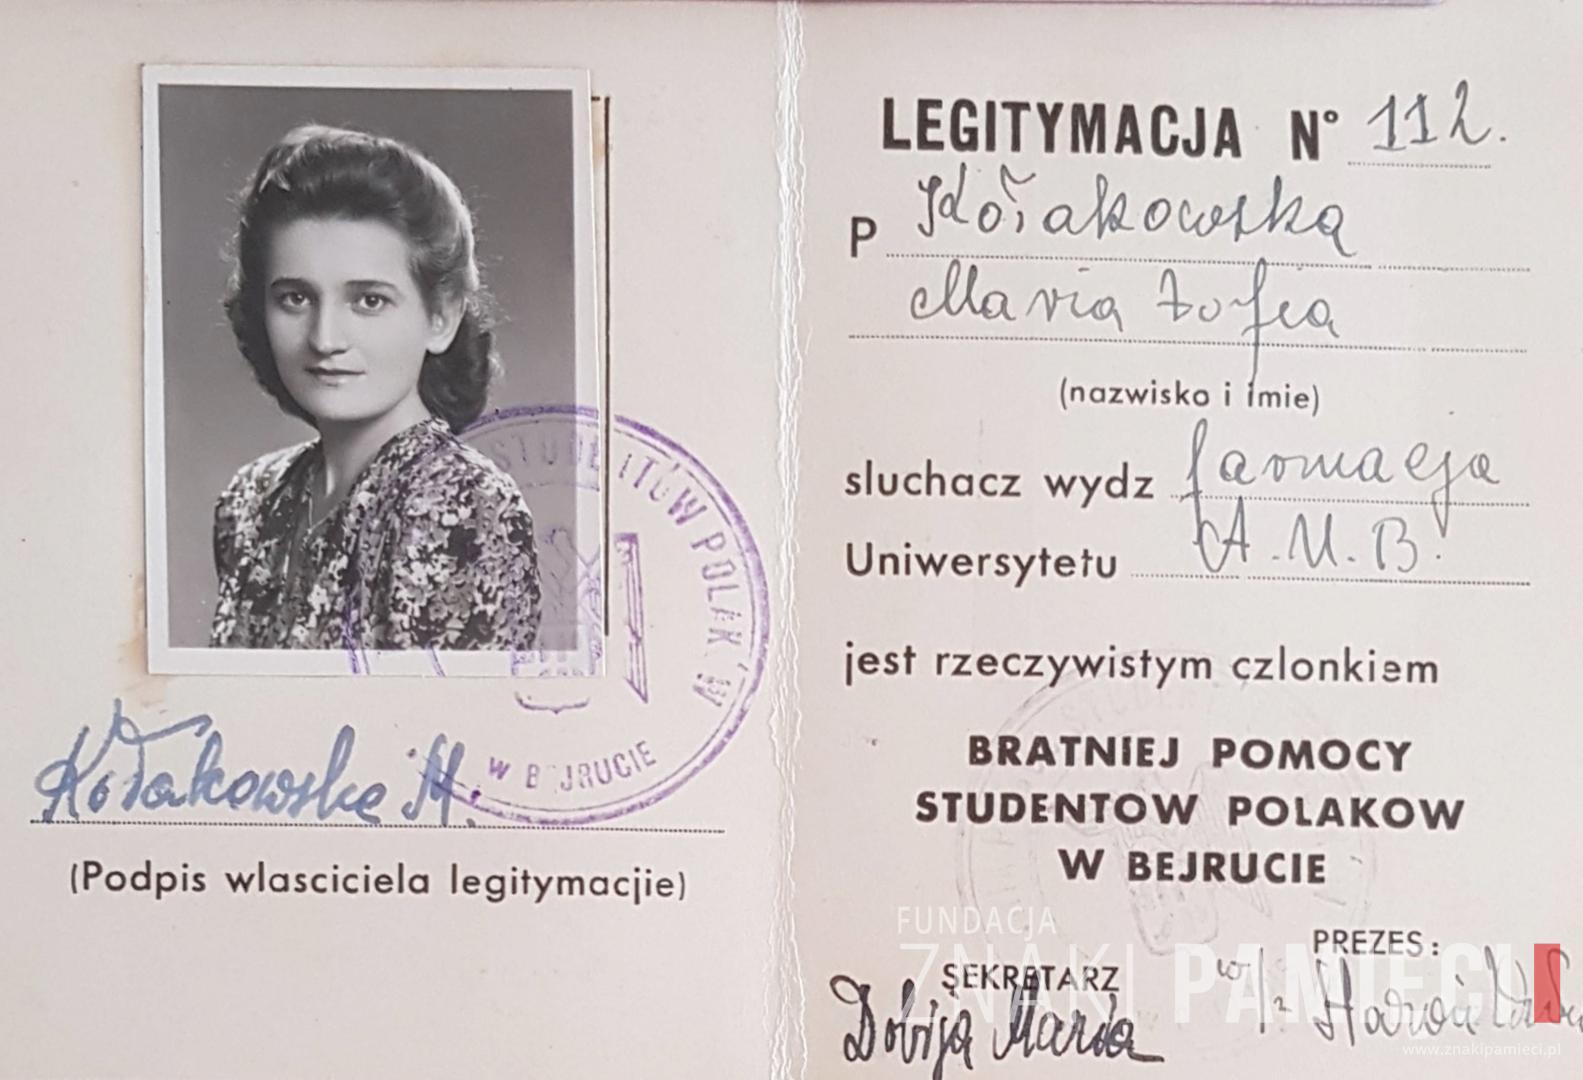 STUDENTÓW POLAK W
W B JRUCIE
Kołakowska M.
(Podpis wlasciciela legitymacjie)
LEGITYMACJA N° 112.
P Kołakowska
Maria Zofia
(nazwisko i imie)
sluchacz wydz farmacja
Uniwersytetu A.U.B.
jest rzeczywistym czlonkiem
BRATNIEJ POMOCY
STUDENTOW POLAKOW
W BEJRUCIE
PREZES:
SEKRETARZ
Dobija Maria
FUNDACJA
ZNAKI PAMIĘCI
www.znakipamieci.pl